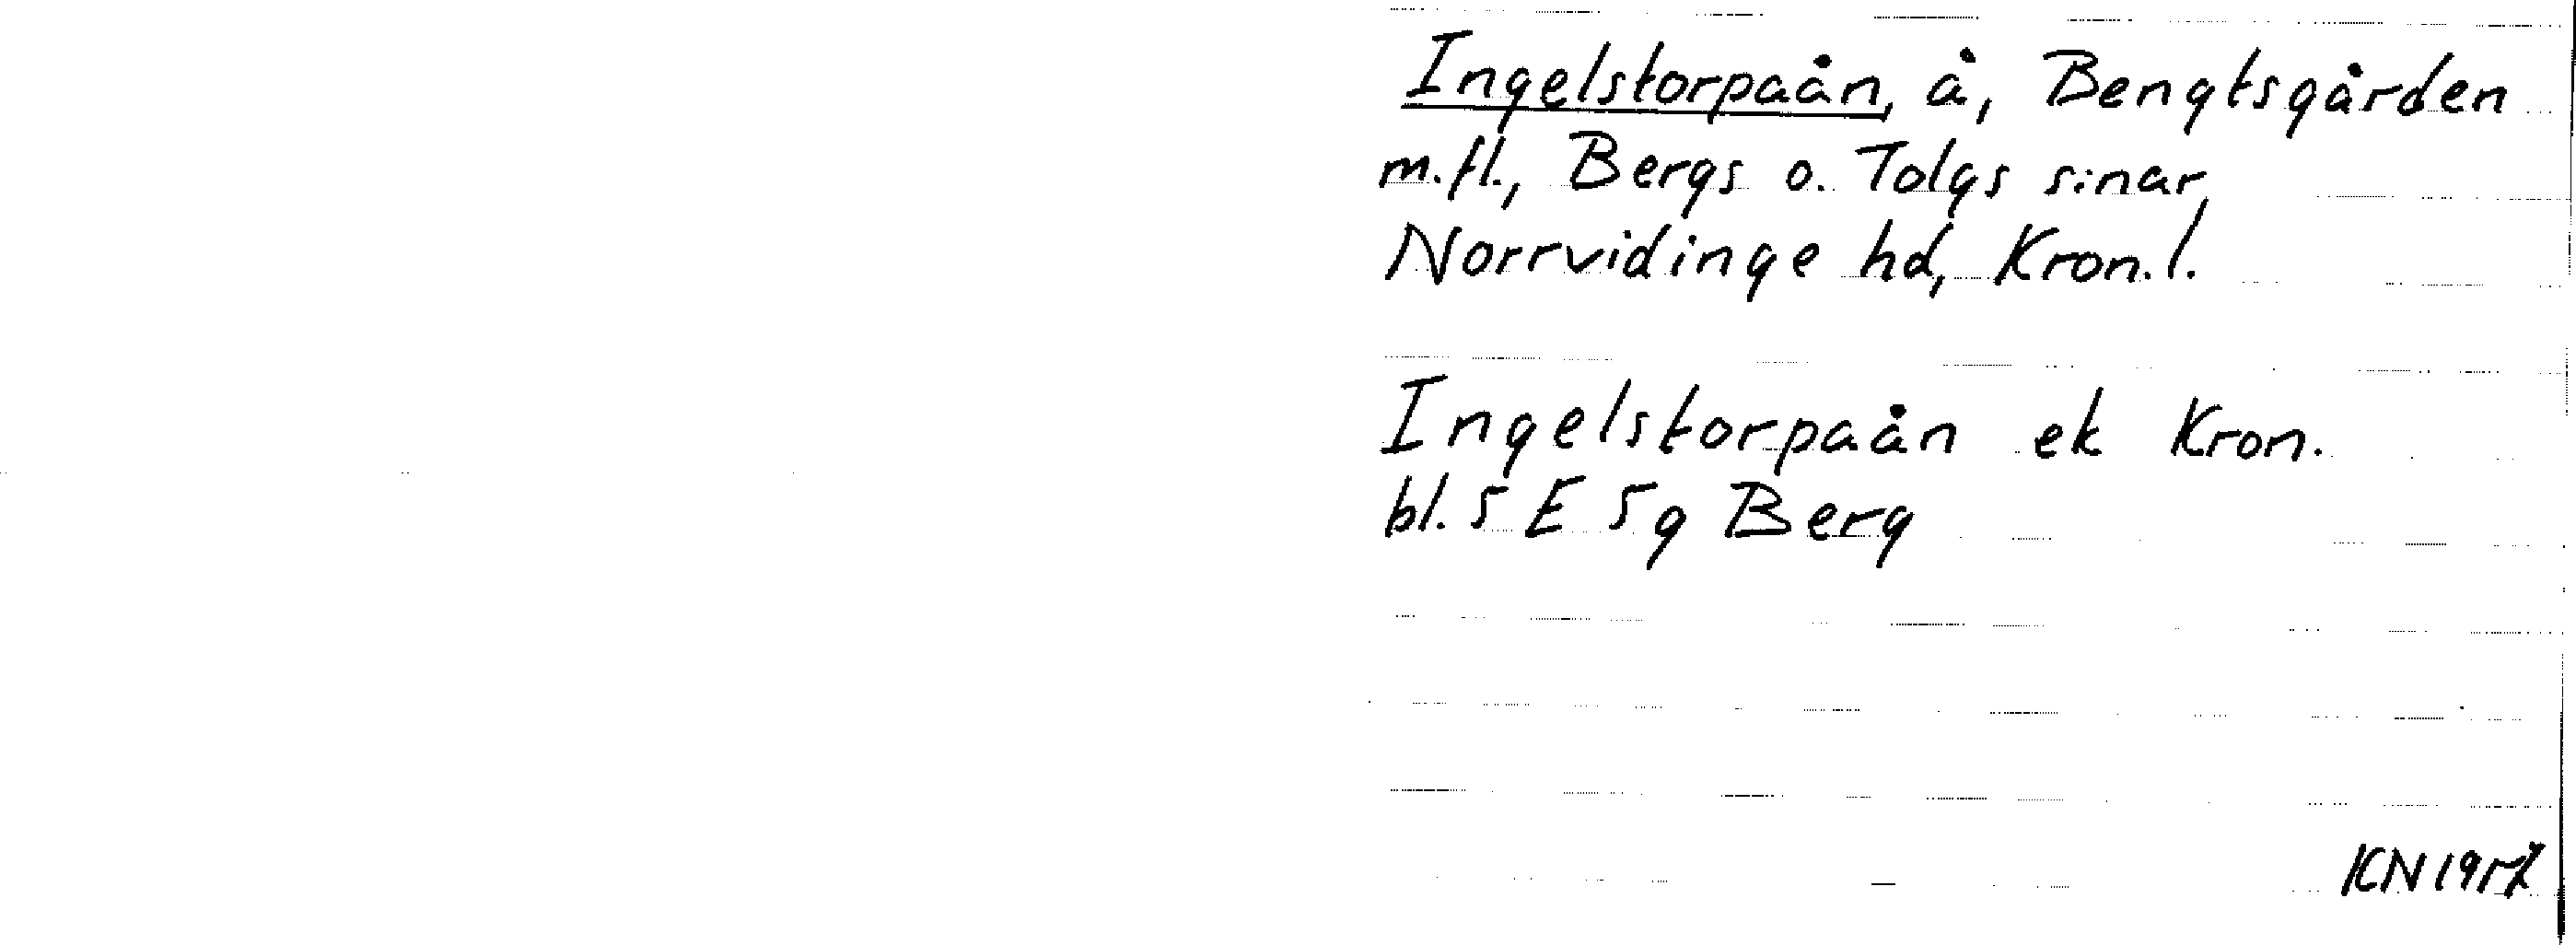 Ingelstorpaån, å, Bengtsgården
m.fl., Bergs o. Tolgs s:nar,
Norrvidinge hd, Kron.l.
Ingelstorpaån ek Kron.
bl. 5 E 5g Berg
KN 1957